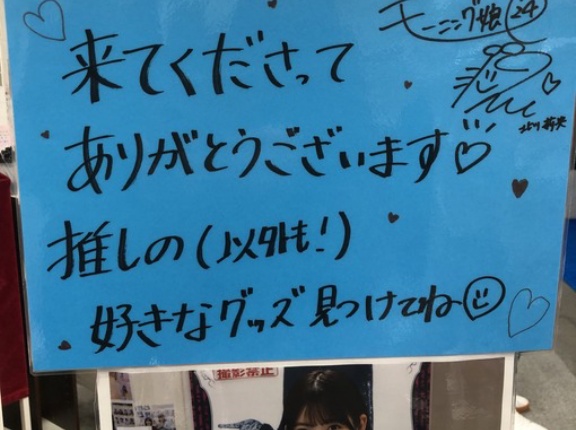 モーニング娘 '24
北川莉央
来てくださって
ありがとうございます♡
推しの(以外も!)
好きなグッズ見つけてね〜
撮影禁止